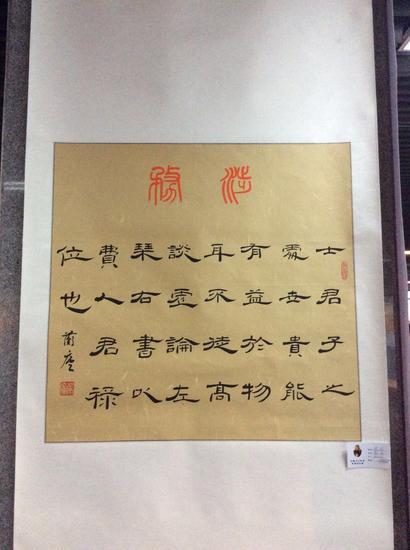 涉務
士君子之
處世貴能
有益於物
耳不徒高
談虛論左
琴右書以
費人君祿
位也
蘭廬